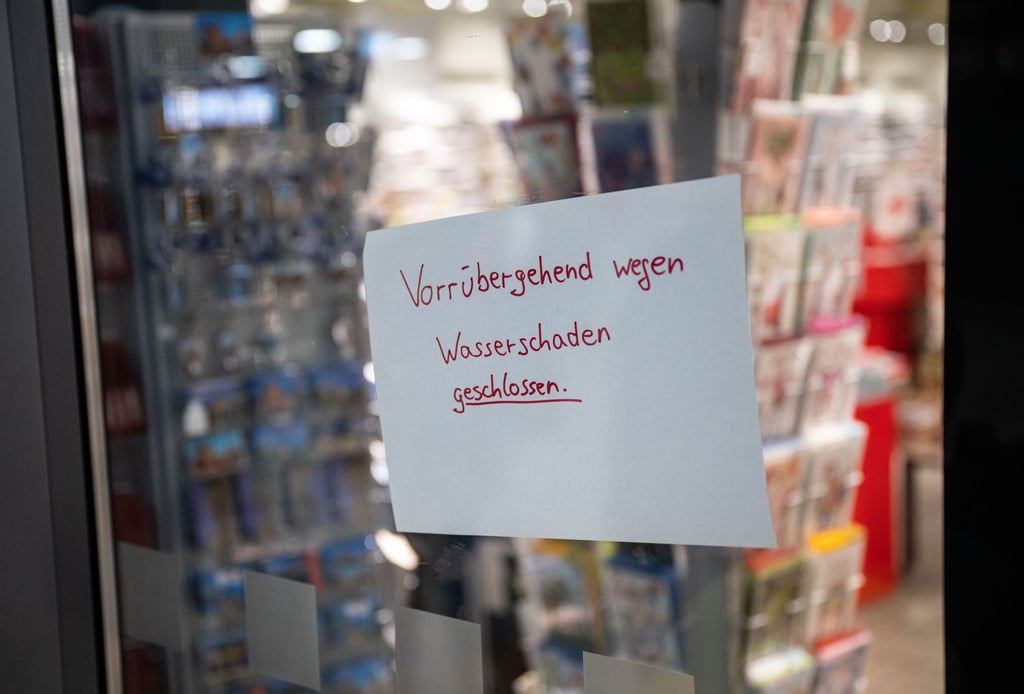 Vorrübergehend wegen
Wasserschaden
geschlossen.